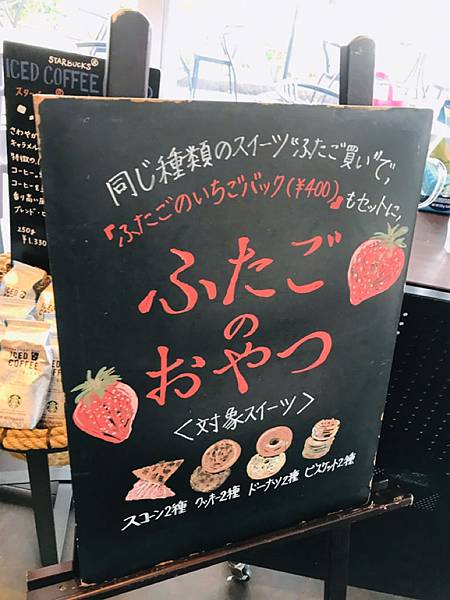 STARBUCKS®
ICED COFFEE
さわやか
キャラメル
特徴の
コーヒー
コーヒーを
香り高い
ブレンド・
250g
¥1,330
ICED
COFFEE
同じ種類のスイーツ"ふたご買い"で、
『ふたごのいちごバック(¥400)』もセットに、
ふたご
の
おやつ
<対象スイーツ>
スコーン2種 クッキー2種 ドーナツ2種 ビスケット2種